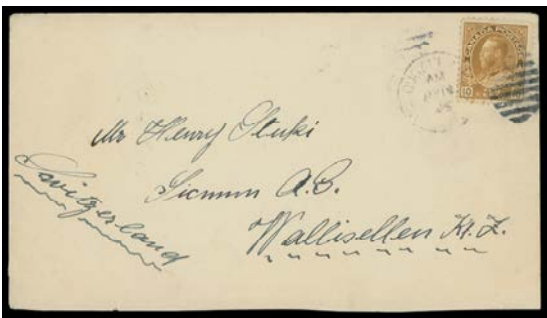 CANADA POSTAGE
10
AM
Mr Henry Stuki
A.G.
Wallisellen Kt. Z.
Switzerland